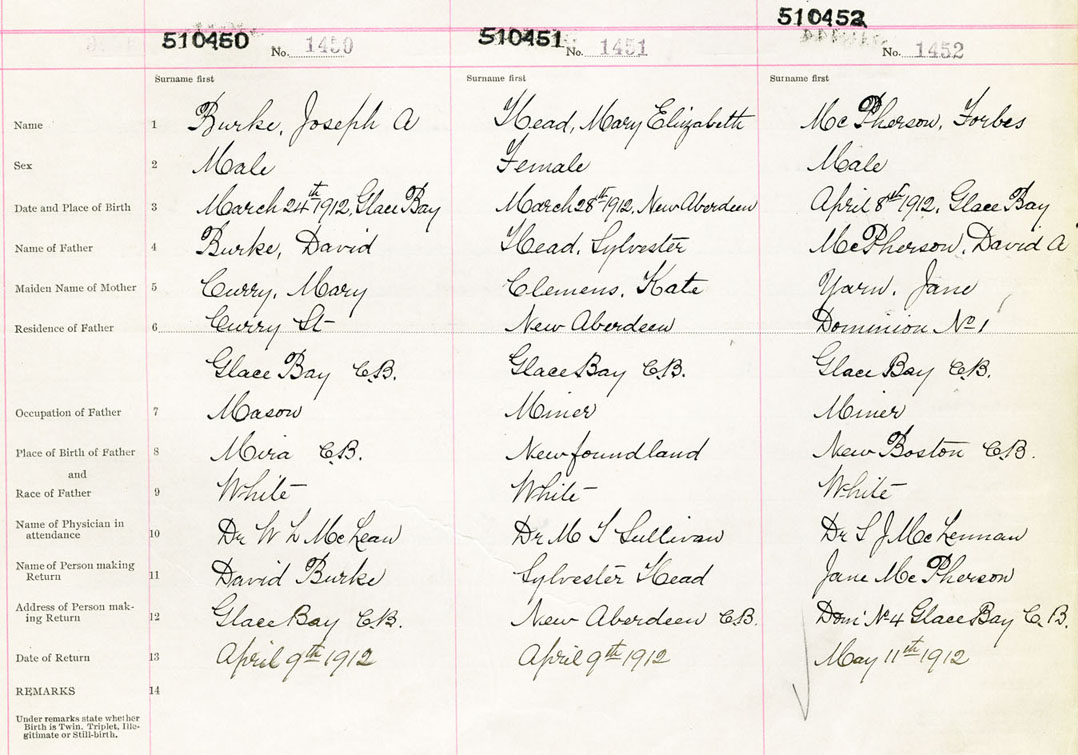 510450 No. 1450 510451 No. 1451 510452 No. 1452
Surname first Surname first Surname first
Name 1 Burke, Joseph A Head, Mary Elizabeth McPherson, Forbes
Sex 2 Male Female Male
Date and Place of Birth 3 March 24th 1912, Glace Bay March 28th 1912, New Aberdeen April 8th 1912, Glace Bay
Name of Father 4 Burke, David Head, Sylvester McPherson, David A
Maiden Name of Mother 5 Curry, Mary Clemens, Kate Yarn, Jane
Residence of Father 6 Curry St New Aberdeen Dominion No 1
Glace Bay C.B. Glace Bay C.B. Glace Bay C.B.
Occupation of Father 7 Mason Miner Miner
Place of Birth of Father 8 Mira C.B. Newfoundland New Boston C.B.
and
Race of Father 9 White White White
Name of Physician in
attendance 10 Dr W L McLean Dr M T Sullivan Dr S J McLennan
Name of Person making
Return 11 David Burke Sylvester Head Jane McPherson
Address of Person mak-
ing Return 12 Glace Bay C.B. New Aberdeen C.B. Dom' No 4 Glace Bay C.B.
Date of Return 13 April 9th 1912 April 9th 1912 May 11th 1912
REMARKS 14
Under remarks state whether
Birth is Twin. Triplet, Ille-
gitimate or Still-birth.